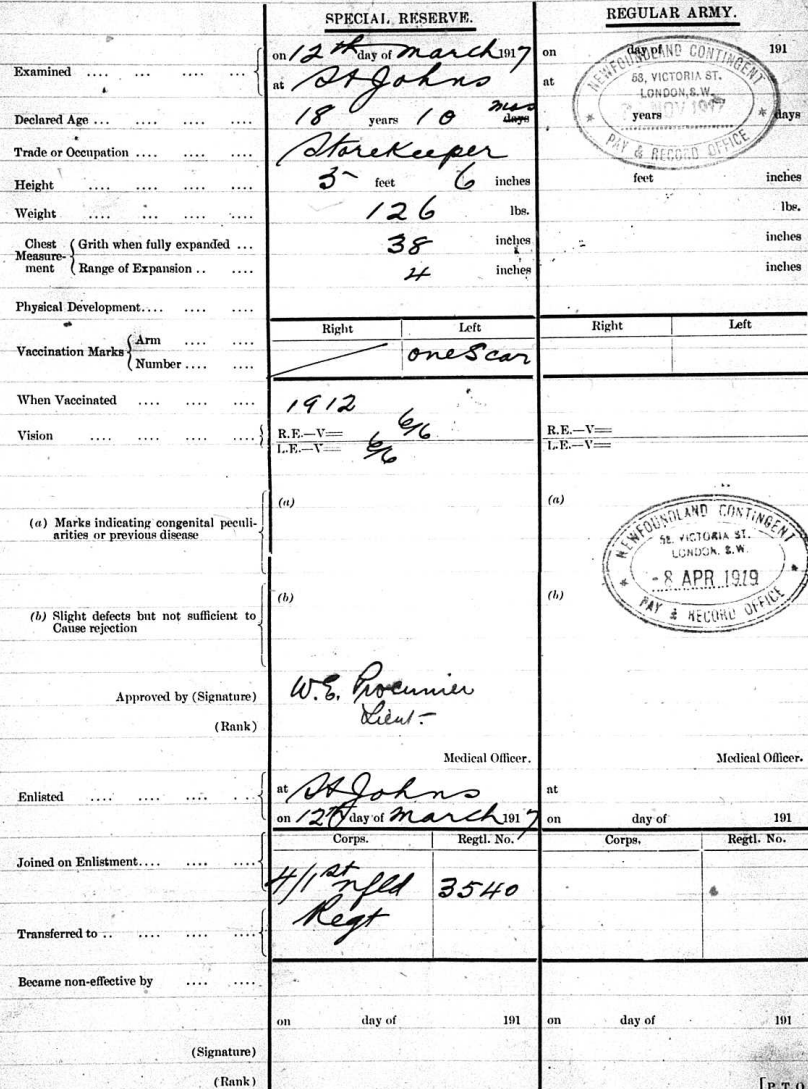 SPECIAL RESERVE.
REGULAR ARMY.
Examined .... ... .... ....
on 12th day of March 1917
at St Johns
on day of 191
at
NEWFOUNDLAND CONTINGENT
58, VICTORIA ST.
LONDON, S.W.
NOV
PAY & RECORD OFFICE
Declared Age ... .... .... ....
18 years 10 mos days
years days
Trade or Occupation .... .... ....
Storekeeper
Height .... .... .... ....
5 feet 6 inches
feet inches
Weight .... ... .... ....
126 lbs.
lbs.
Chest Measure-ment
Grith when fully expanded ...
38 inches
inches
Range of Expansion .. ....
4 inches
inches
Physical Development.... .... ....
Right Left
Right Left
Vaccination Marks
Arm .... ....
Number .... ....
one Scar
When Vaccinated .... .... ....
1912
Vision .... .... .... ....
R.E.—V= 6/6
L.E.—V= 6/6
R.E.—V=
L.E.—V=
(a) Marks indicating congenital peculi-
arities or previous disease
(a)
(a)
NEWFOUNDLAND CONTINGENT
58, VICTORIA ST.
LONDON, S.W.
- 8 APR 1919
PAY & RECORD OFFICE
(b) Slight defects but not sufficient to
Cause rejection
(b)
(b)
Approved by (Signature)
W.E. Procunier
(Rank)
Lieut-
Medical Officer.
Medical Officer.
Enlisted .... .... .... ....
at St Johns
on 12th day of March 1917
at
on day of 191
Corps. Regtl. No.
Corps. Regtl. No.
Joined on Enlistment.... .... ....
4/1st nfld
Regt
3540
Transferred to .. .... .... ....
Became non-effective by .... ....
on day of 191
on day of 191
(Signature)
(Rank)
[P.T.O